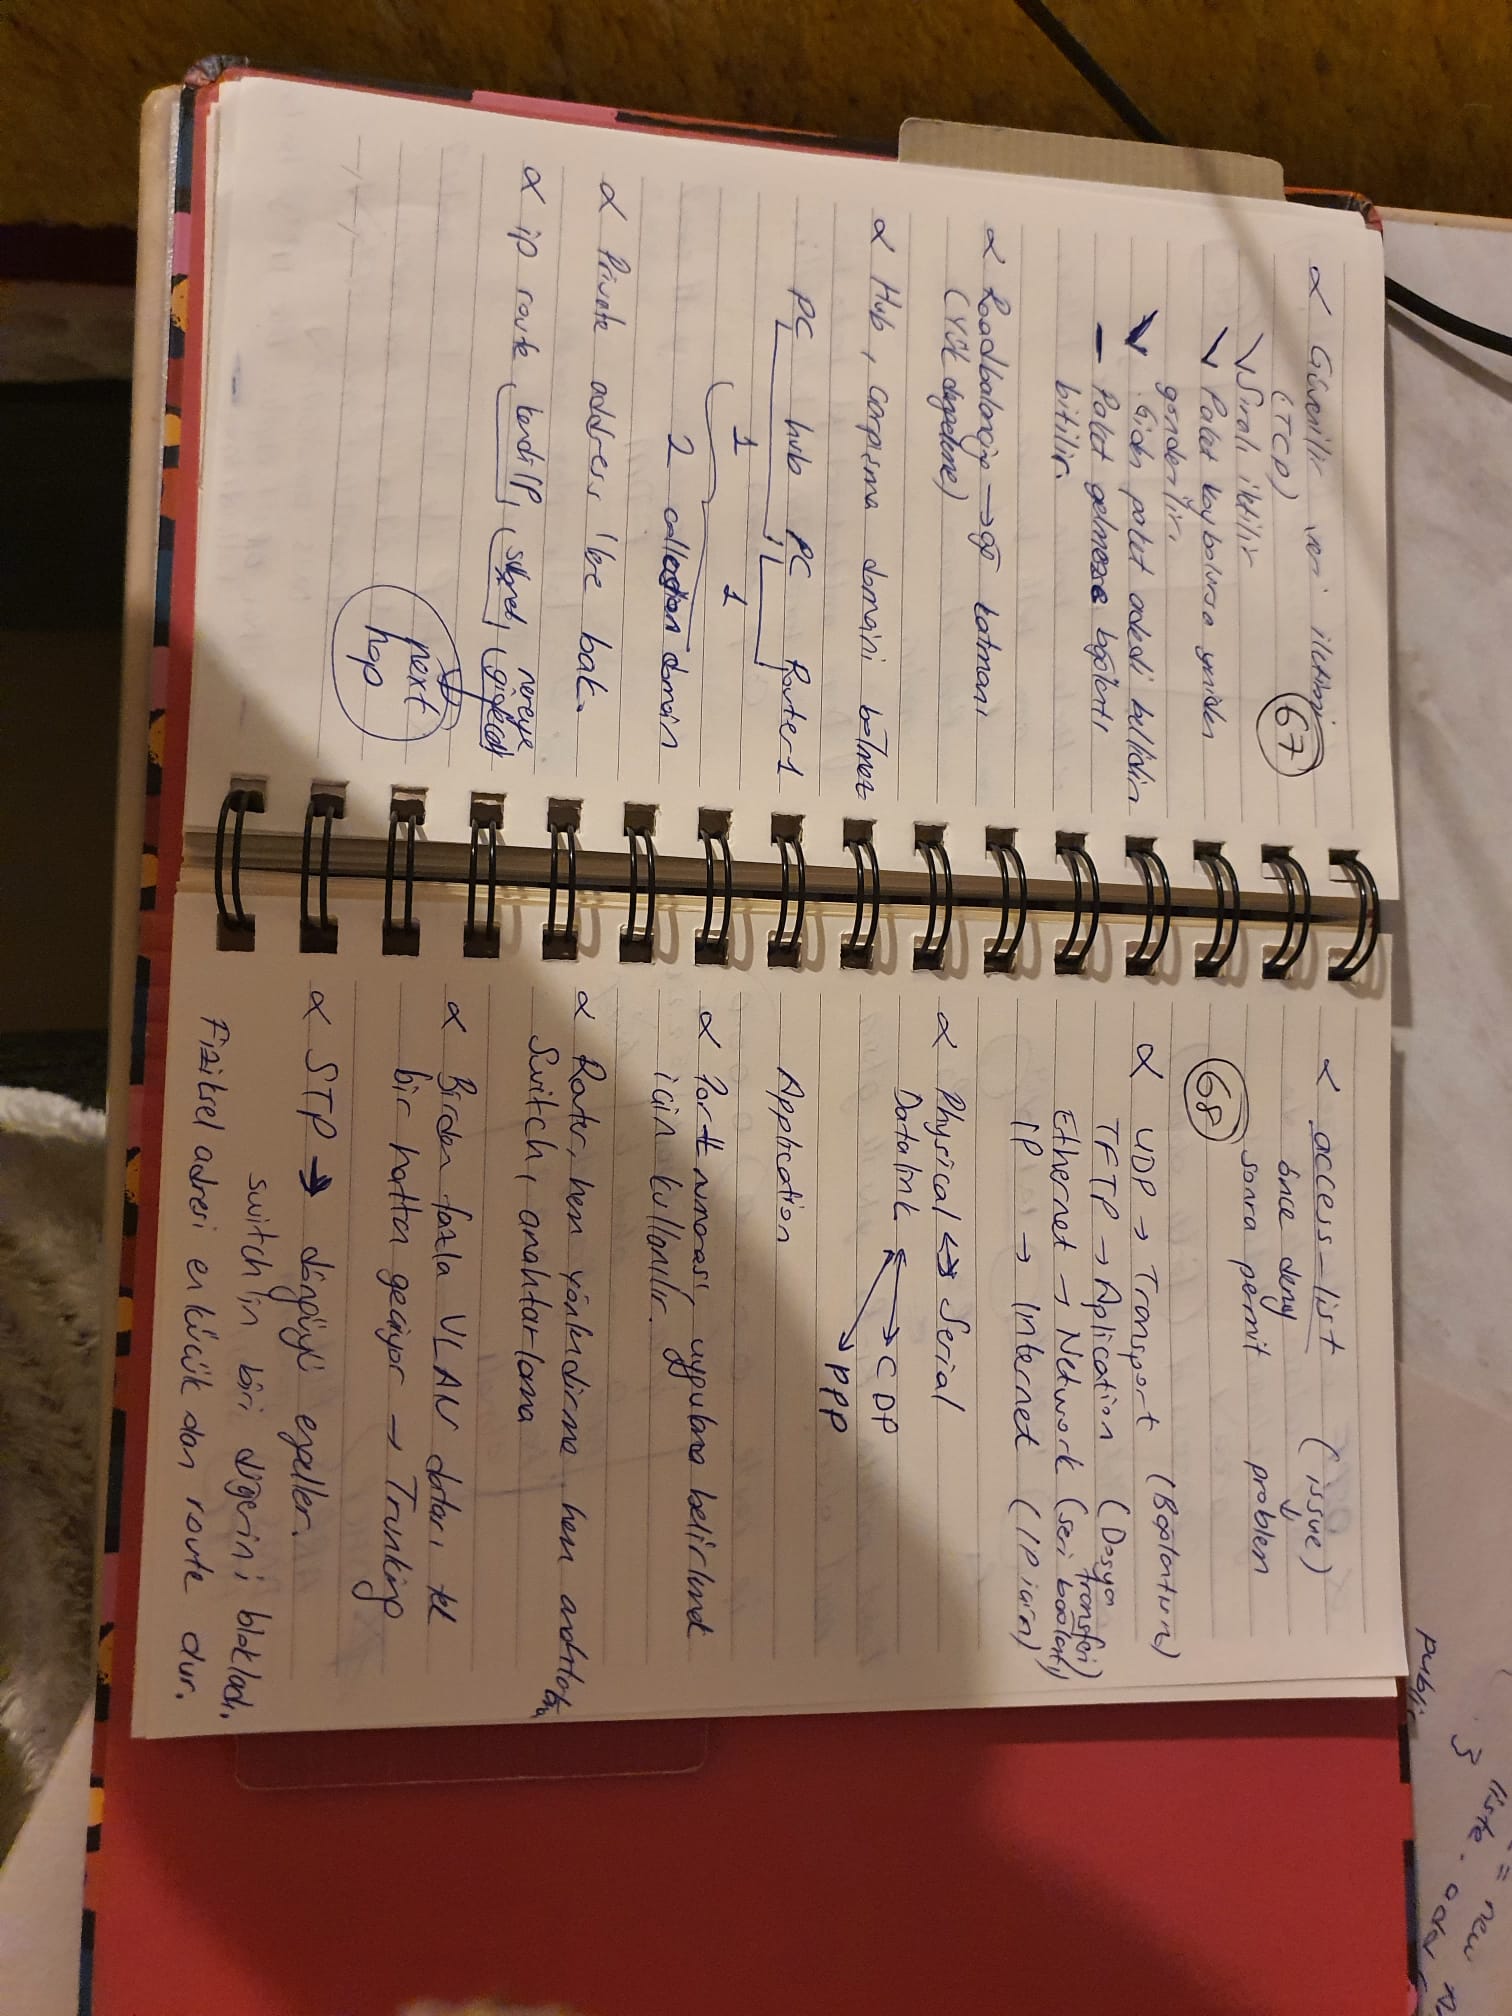 α Güvenilir veri iletimi
67
(TCP)
Sıralı iletilir
Paket kaybolursa yeniden
gönderilir.
Giden paket adedi bellidir
— Paket gelmezse bağlantı
bitilir.
α Roadbalancing → ağ katmanı
(Yük dengeleme)
α Hub, çarpışma domaini bölmez
PC hub PC Router1
1 1
2 domain
α Private address 'lere bak.
α ip route kendi IP, subnet, nereye
gidecek
next
hop
α access-list (issue)
önce deny
sonra permit problem
68
α UDP → Transport
TFTP → Aplication (Dosya
transferi)
Ethernet → Network (seri bağlantı)
IP → Internet (IP için)
α Physical ↔ Serial
Datalink ↔ CDP
PPP
Application
α Port numarası, uygulama belirlemek
için kullanılır.
α Router, hem yönlendirme hem
Switch, anahtarlama
α Birden fazla VLAN dataları tek
bir hattan geçiyor → Trunking
α STP → döngüyü engeller.
switch'in biri diğerini blokladı.
Fiziksel adresi en küçük olan route dur.
= new
liste. add(
}
public